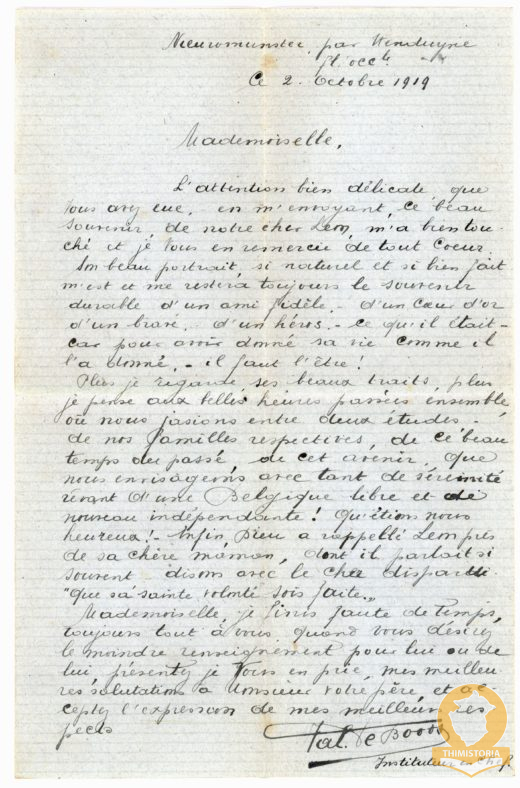 Nieuwmunster, par Wenduyne
Fl. occle
Ce 2. Octobre 1919
Mademoiselle,
L'attention bien délicate, que
vous avez eue, en m'envoyant, ce beau
souvenir, de notre cher Lem, m'a bien tou-
ché et je vous en remercie de tout coeur.
Son beau portrait, si naturel et si bien fait
m'est et me restera toujours le souvenir
durable d'un ami fidèle, - d'un coeur d'or
d'un brave, - d'un héros. - Ce qu'il était -
car pour avoir donné sa vie comme il
l'a donné, - il faut l'être!
Plus je regarde, ses beaux traits, plus
je pense aux belles heures passées ensemble
où nous jasions entre deux études -
de nos familles respectives, de ce beau
temps du passé, de cet avenir, que
nous envisageons avec tant de sérénité
rêvant d'une Belgique libre et de
nouveau indépendante! Qu'étions nous
heureux! - Enfin, Dieu a rappellé Lem près
de sa chère maman, dont il parlait si
souvent disons avec le cher disparu.
"Que sa sainte volonté sois faite."
Mademoiselle, je finis faute de temps,
toujours tout à vous, quand vous désirez
le moindre renseignement pour lui ou de
lui, présentez je vous en prie, mes meilleu-
res salutations à Monsieur votre père, et ac-
ceptez l'expression de mes meilleurs res
pects
Instituteur en Chef
THIMISTORIA